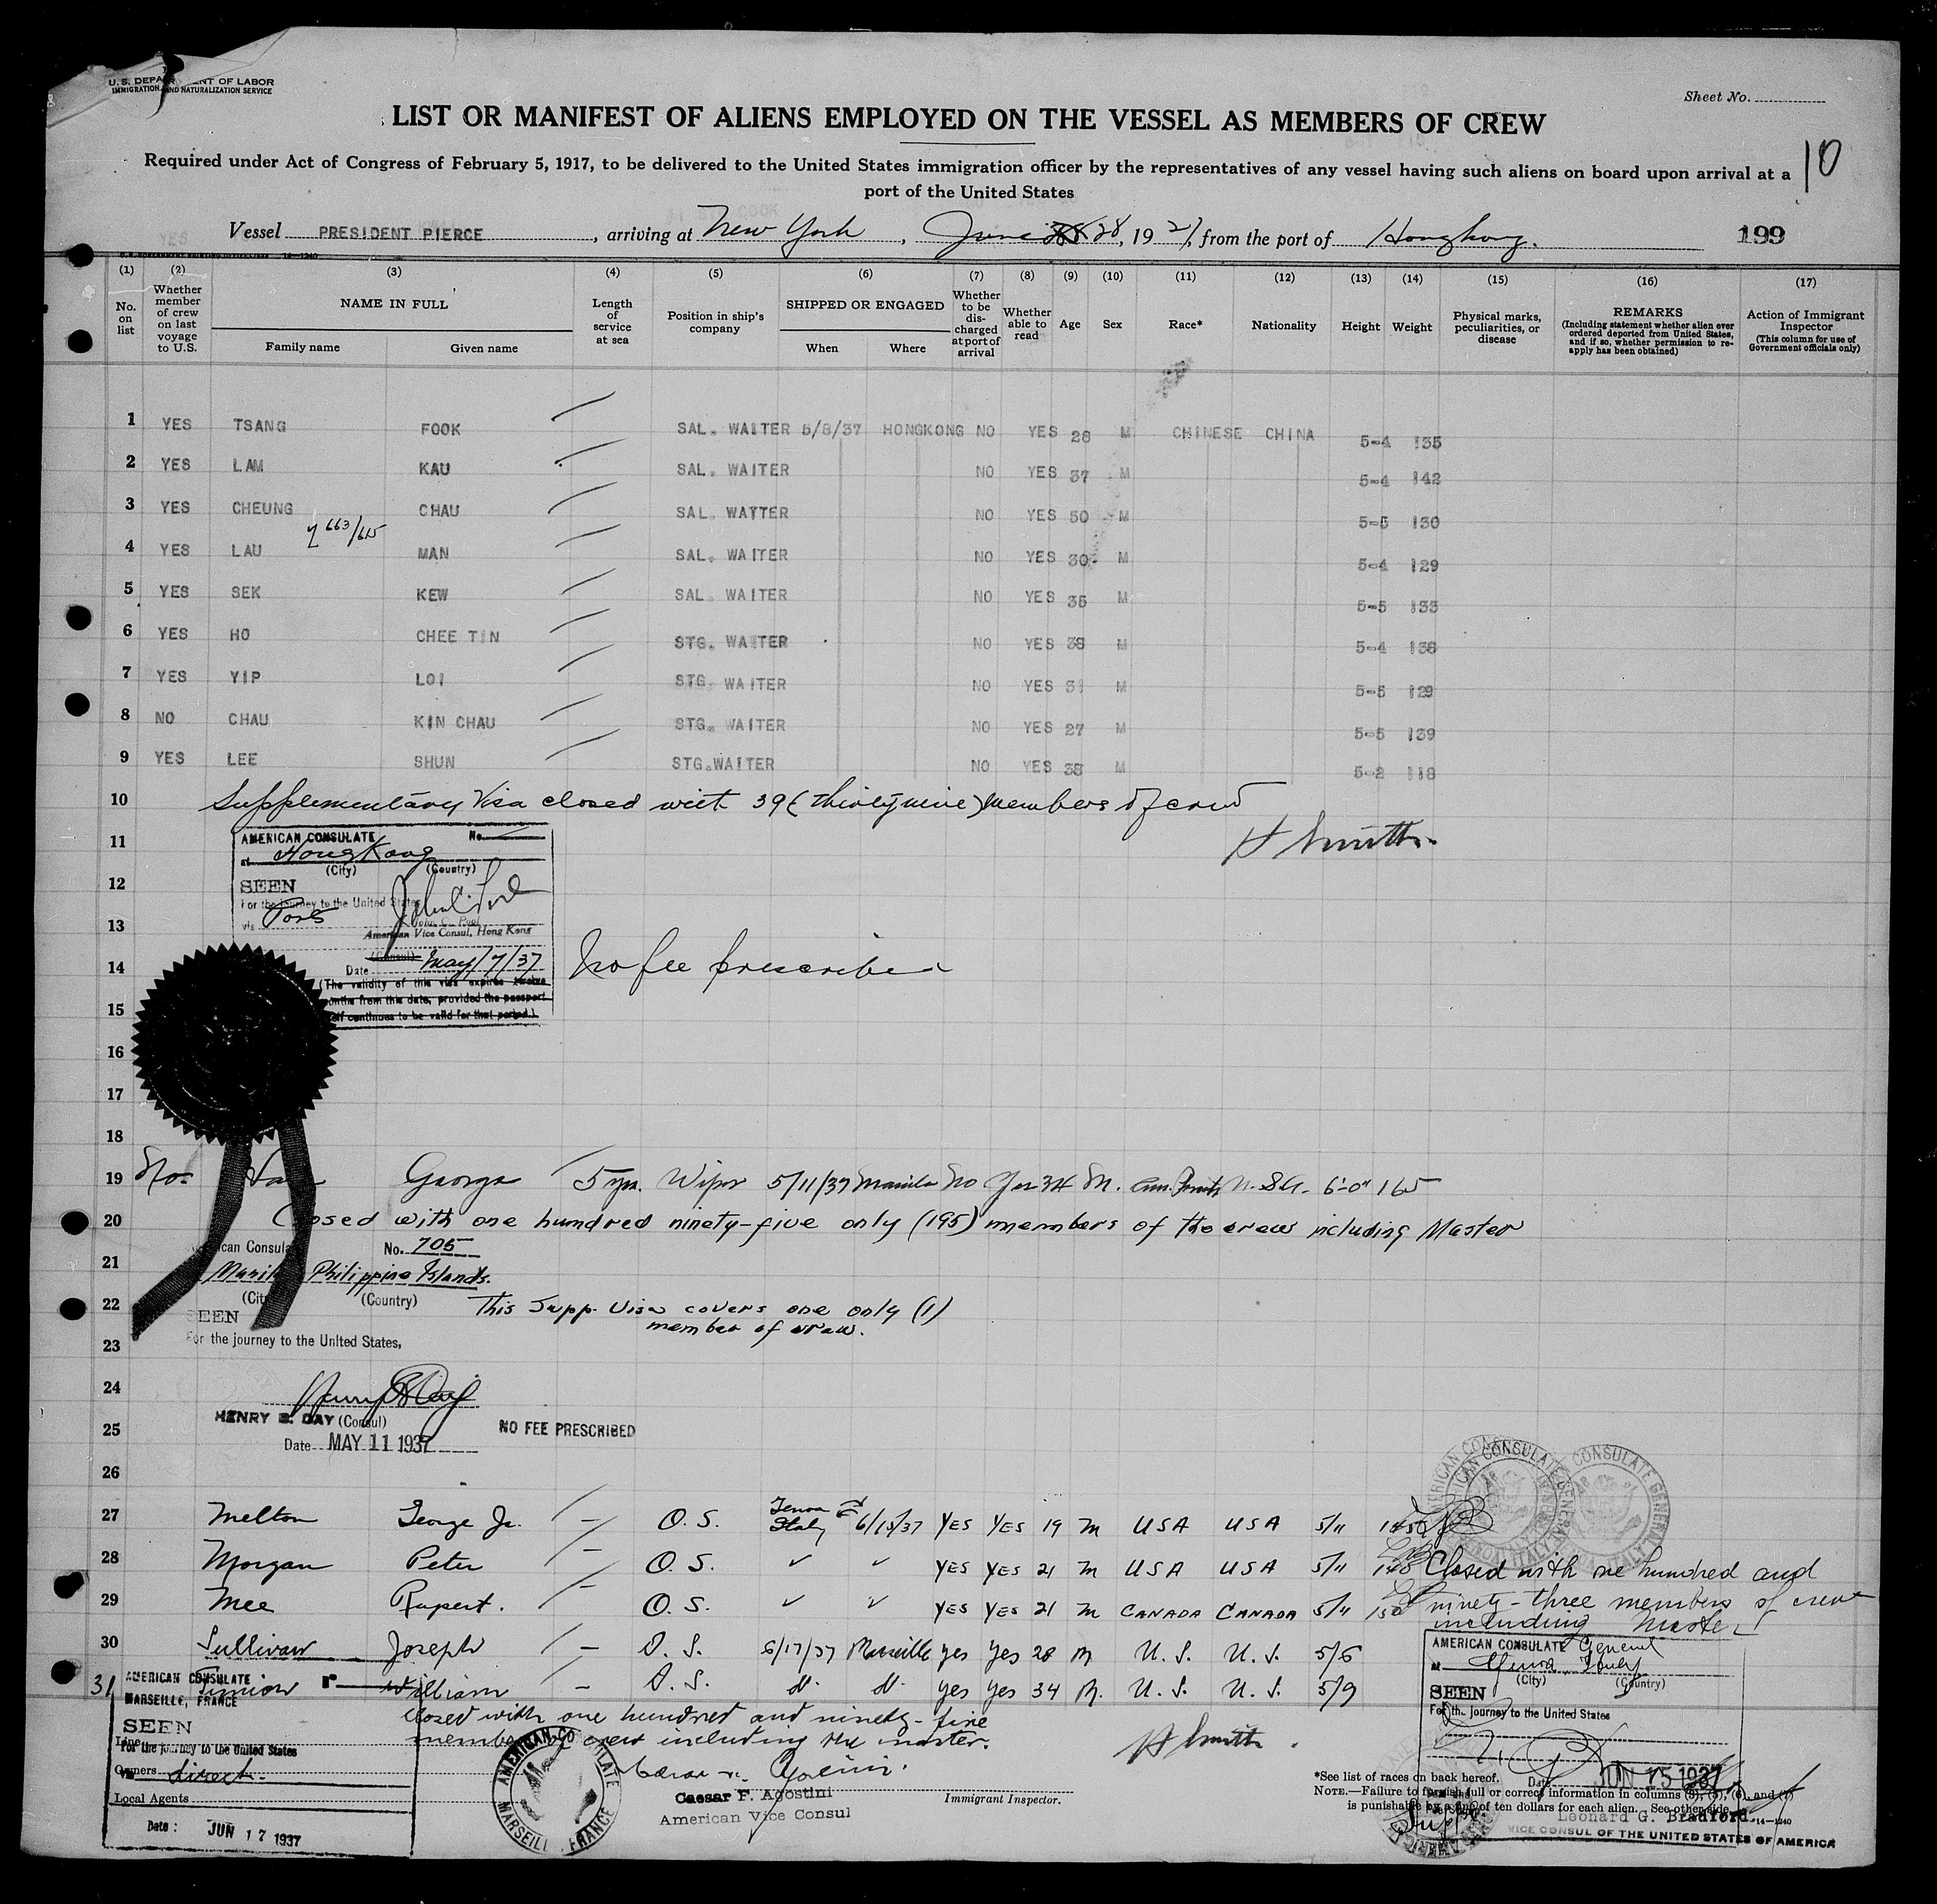 U. S. DEPARTMENT OF LABOR
IMMIGRATION AND NATURALIZATION SERVICE
Sheet No.
LIST OR MANIFEST OF ALIENS EMPLOYED ON THE VESSEL AS MEMBERS OF CREW
10
Required under Act of Congress of February 5, 1917, to be delivered to the United States immigration officer by the representatives of any vessel having such aliens on board upon arrival at a
port of the United States
Vessel PRESIDENT PIERCE, arriving at New York, June 28, 19 , from the port of Hongkong. 199
(1) (2) (3) (4) (5) (6) (7) (8) (9) (10) (11) (12) (13) (14) (15) (16) (17)
No. on list
Whether member of crew on last voyage to U.S.
NAME IN FULL
Family name Given name
Length of service at sea
Position in ship's company
SHIPPED OR ENGAGED
When Where
Whether to be discharged at port of arrival
Whether able to read
Age
Sex
Race*
Nationality
Height
Weight
Physical marks, peculiarities, or disease
REMARKS
(Including statement whether alien ever ordered deported from United States, and if so, whether permission to reapply has been obtained)
Action of Immigrant Inspector
(This column for use of Government officials only)
1 YES TSANG FOOK SAL. WAITER 5/8/37 HONGKONG NO YES 28 M CHINESE CHINA 5-4 135
2 YES LAM KAU SAL. WAITER NO YES 37 M 5-4 142
3 YES CHEUNG CHAU SAL. WAYTER NO YES 50 M 5-5 130
663/615
4 YES LAU MAN SAL. WAITER NO YES 30 M 5-4 129
5 YES SEK KEW SAL. WAITER NO YES 35 M 5-5 133
6 YES HO CHEE TIN STG. WAITER NO YES 38 M 5-4 138
7 YES YIP LOI STG. WAITER NO YES 31 M 5-5 129
8 NO CHAU KIN CHAU STG. WAITER NO YES 27 M 5-5 139
9 YES LEE SHUN STG.WAITER NO YES 38 M 5-2 118
10 Supplementary Visa closed with 39 (thirtynine) members of crew
11 H Smith
12
13
14
15
16
17
18
AMERICAN CONSULATE No.
at HongKong
(City) (Country)
SEEN
For the journey to the United States
via Ports
American Vice Consul, Hong Kong
Date May/7/37
(The validity of this visa expires twelve
months from this date, provided the passport
itself continues to be valid for that period.)
No fee prescribed
19 No George 5 yrs. Wiper 5/11/37 Manila No Yes 34 M. U.S.A. 6'-0" 165
20 Closed with one hundred ninety-five only (195) members of the crew including Master
21 American Consulate No. 705
Manila Philippine Islands.
22 (City) (Country)
This Supp. Visa covers one only (1)
member of crew.
SEEN
23 For the journey to the United States,
24
HENRY B. DAY (Consul)
25 NO FEE PRESCRIBED
Date MAY 11 1937
26
27 Melton George Jr. – O. S. Genoa Italy 6/15/37 YES YES 19 M USA USA 5/11
28 Morgan Peter – O. S. ✓ ✓ YES YES 21 M USA USA 5/11 148
29 Mee Rupert. – O. S. ✓ ✓ YES YES 21 M CANADA CANADA 5/11 150
Closed with one hundred and
ninety-three members of crew
including Master
30 Sullivan Joseph – O. S. 6/17/37 Marseille yes yes 28 M U. S. U. S. 5/6
31 William – O. S. d. d. yes yes 34 M. U. S. U. S. 5/9
closed with one hundred and ninety-five
members of crew including the master.
H Smith
AMERICAN CONSULATE
MARSEILLE, FRANCE
SEEN
Line
For the journey to the United States
Owners
Via direct
Local Agents
Date: JUN 17 1937
AMERICAN CONSULATE
MARSEILLE, FRANCE
Caesar F. Agostini
American Vice Consul
Immigrant Inspector.
AMERICAN CONSULATE General
at Genoa, Italy
(City) (Country)
SEEN
For the journey to the United States
Date JUN 15 1937
*See list of races on back hereof.
NOTE.—Failure to furnish full or correct information in columns (3), (5), (6), and (7)
is punishable by a fine of ten dollars for each alien. See other side. 14—1240
Supp.
Leonard G. Bradford.
VICE CONSUL OF THE UNITED STATES OF AMERICA
AMERICAN CONSULATE GENERAL